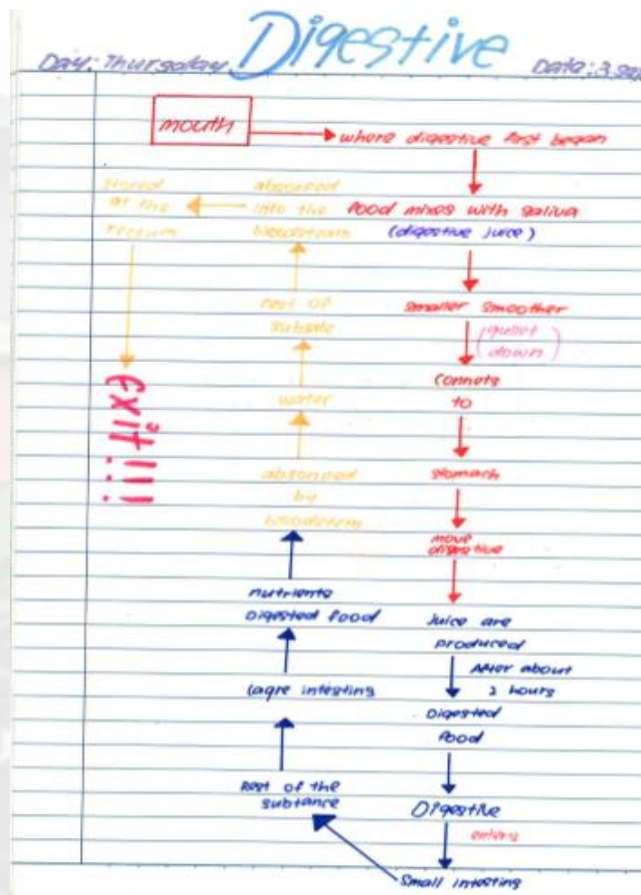 Digestive
Day: Thursday
Date: 3.
mouth
where digestive first began
food mixes with saliva
(digestive juice)
smaller smoother
(gullet
down)
connets
to
stomach
move
digestive
Juice are
produced
After about
hours
Digested
food
Digestive
enters
small intesting
Rest of the
subtance
laqre intesting
nutriente
Digested food
absonped
by
water
rest of
absonped
into the
stored
at the
rectum
exit!!!!